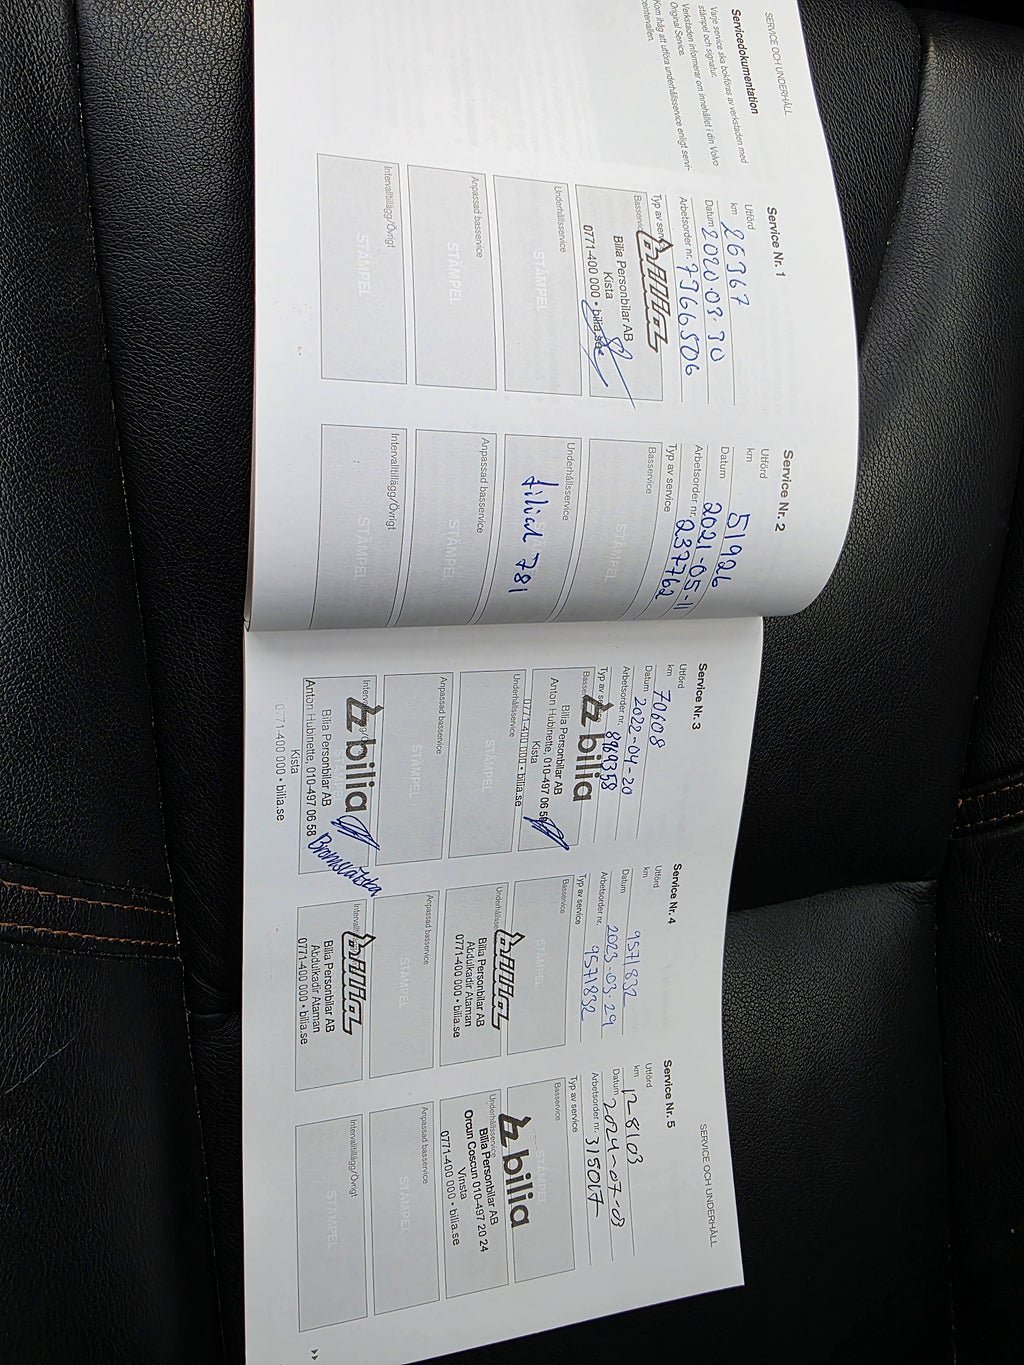 SERVICE OCH UNDERHÅLL
Servicedokumentation
Varje service ska bokföras av verkstaden med
stämpel och signatur.
Verkstaden informerar om innehållet i din Volvo
Original Service.
Kom ihåg att utföra underhållsservice enligt servi-
ceintervallen.
Service Nr. 1
Utförd
km 26367
Datum 2020.03.30
Arbetsorder nr. 7366506
Typ av service
Basservice
bilia
Bilia Personbilar AB
Kista
0771-400 000 • bilia.se
Underhållsservice
STÄMPEL
Anpassad basservice
STÄMPEL
Intervalltillägg/Övrigt
STÄMPEL
Service Nr. 2
Utförd
km 51926
Datum 2021-05-11
Arbetsorder nr. 237762
Typ av service
Basservice
STÄMPEL
Underhållsservice
filial 781
Anpassad basservice
STÄMPEL
Intervalltillägg/Övrigt
STÄMPEL
Service Nr. 3
Utförd
km 70608
Datum 2022-04-20
Arbetsorder nr. 8969358
Typ av
Basse
bilia
Bilia Personbilar AB
Anton Hubinette, 010-497 06 58
Kista
0771-400 000 • bilia.se
Underhållsservice
STÄMPEL
Anpassad basservice
STÄMPEL
bilia
Bilia Personbilar AB
Anton Hubinette, 010-497 06 58
Kista
0771-400 000 • bilia.se
Bromsvätska
Service Nr. 4
Utförd
km 9571832
Datum 2023.03.29
Arbetsorder nr. 9571832
Typ av service
Basservice
STÄMPEL
Underhållsse
bilia
Bilia Personbilar AB
Abdulkadir Ataman
0771-400 000 • bilia.se
Anpassad basservice
STÄMPEL
Interval
bilia
Bilia Personbilar AB
Abdulkadir Ataman
0771-400 000 • bilia.se
SERVICE OCH UNDERHÅLL
Service Nr. 5
Utförd
km 128103
Datum 2024-07-03
Arbetsorder nr. 315017
Typ av service
Basservice
STÄMPEL
bilia
Underhållsservice
Bilia Personbilar AB
Orcun Coscun 010-497 20 24
Vinsta
0771-400 000 • bilia.se
Anpassad basservice
STÄMPEL
Intervalltillägg/Övrigt
STÄMPEL